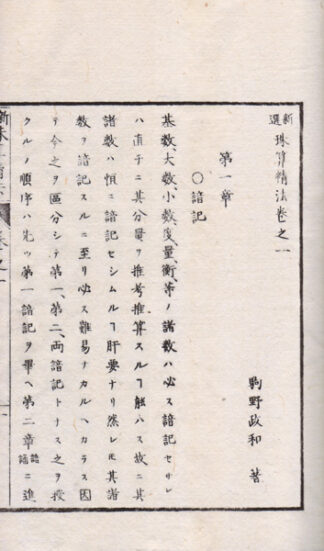 新選珠算精法巻之一
駒野政和 著
第一章
〇諳記
基数、大数、小数、度、量、衡、等ノ諸数ハ必ス諳記セサレ
ハ直チニ其分量ヲ推考推算スルヿ能ハス故ニ其
諸数ハ恒ニ諳記セシムルヿ肝要ナリ然レ𪜈其諸
数ヲ諳記スルニ至リ必ス難易ナカルヘカラス因
リ今之ヲ区分シテ第一、第二、両諳記トナス之ヲ授
クルノ順序ハ先ツ第一諳記ヲ畢ヘ第二章ニ進